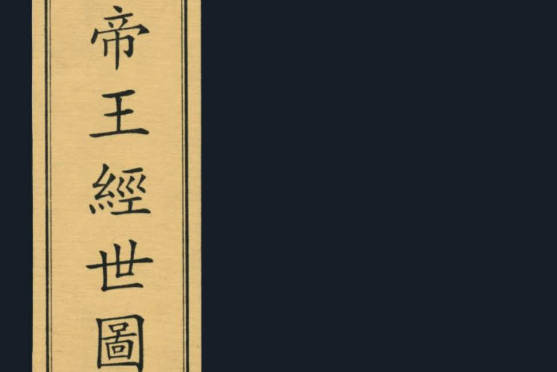 帝王經世圖